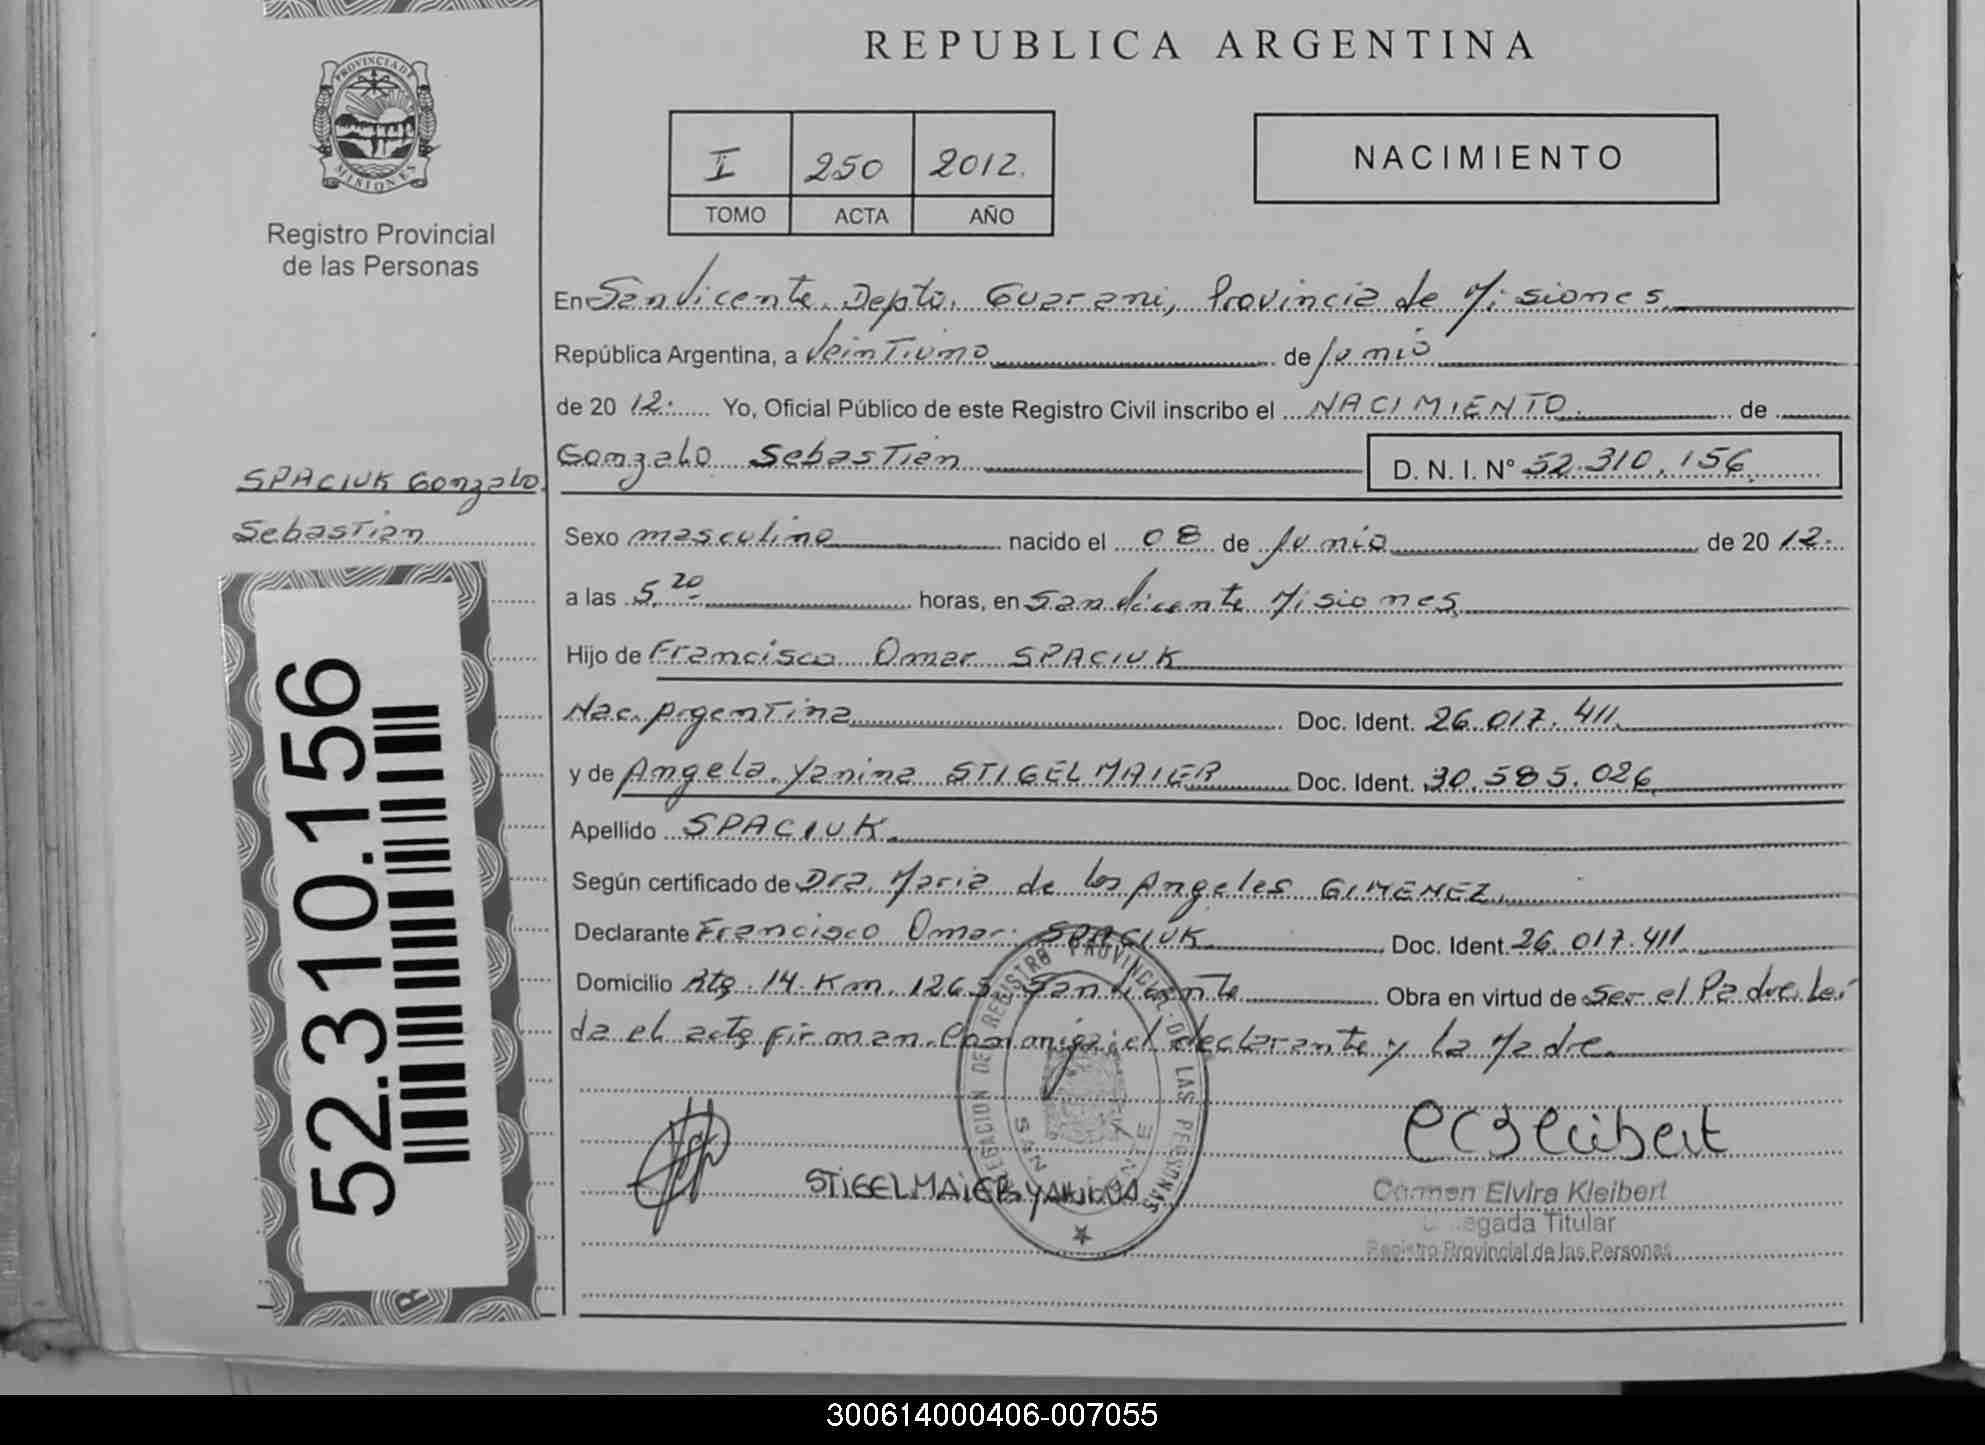 REPUBLICA ARGENTINA
PROVINCIA DE
MISIONES
Registro Provincial
de las Personas
I 250 2012.
TOMO ACTA AÑO
NACIMIENTO
En San Vicente. Depto. Guarani, Provincia de Misiones.
República Argentina, a Veintiuno de Junio
de 20 12. Yo, Oficial Público de este Registro Civil inscribo el NACIMIENTO. de
Gonzalo Sebastian D. N. I. N° 52.310.156
SPACIUK Gonzalo
Sebastian
Sexo masculino nacido el 08 de Junio de 20 12.
a las 5.20 horas, en San Vicente Misiones
Hijo de Francisco Omar SPACIUK
Nac. Argentina Doc. Ident. 26.017.411
y de Angela Yanina STIGELMAIER Doc. Ident. 30.585.026
Apellido SPACIUK.
Según certificado de Dra. Maria de los Angeles GIMENEZ.
Declarante Francisco Omar SPACIUK Doc. Ident. 26.017.411
Domicilio Rta. 14 Km. 1263 San Vicente Obra en virtud de Ser el Padre. Leí
da el acta firman Conmigo el declarante y la Madre.
52.310.156
DELEGACION DE REGISTRO PROVINCIAL DE LAS PERSONAS
SAN VICENTE
STIGELMAIER YANINA
C E Kleibert
Carmen Elvira Kleibert
Delegada Titular
Registro Provincial de las Personas
300614000406-007055